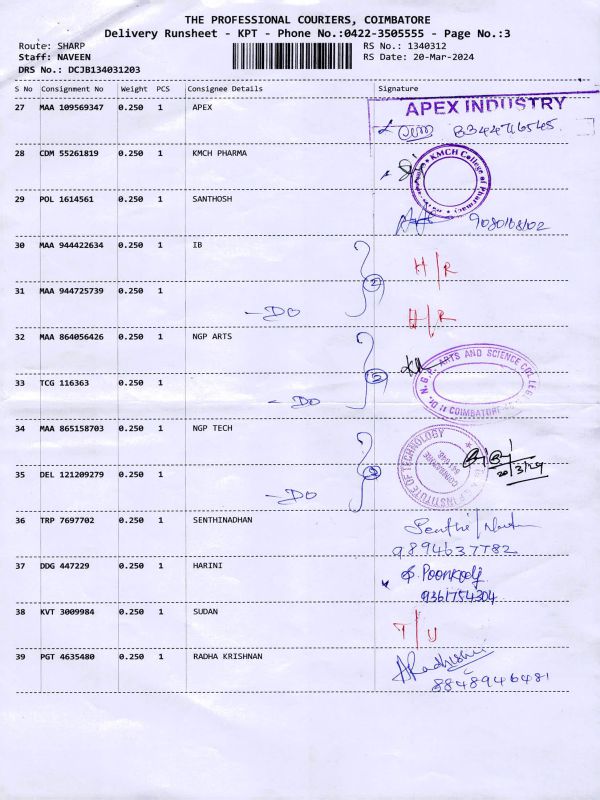 THE PROFESSIONAL COURIERS, COIMBATORE
Delivery Runsheet - KPT - Phone No.:0422-3505555 - Page No.:3
Route: SHARP RS No.: 1340312
Staff: NAVEEN RS Date: 20-Mar-2024
DRS No.: DCJB134031203
S No Consignment No Weight PCS Consignee Details Signature
27 MAA 109569347 0.250 1 APEX APEX INDUSTRY
8344716545
28 CDM 55261819 0.250 1 KMCH PHARMA KMCH College of Pharmacy
29 POL 1614561 0.250 1 SANTHOSH
30 MAA 944422634 0.250 1 IB H/R
2
31 MAA 944725739 0.250 1 -DO H/R
32 MAA 864056426 0.250 1 NGP ARTS Dr. N.G.P. ARTS AND SCIENCE COLLEGE COIMBATORE
33 TCG 116363 0.250 1 -DO
34 MAA 865158703 0.250 1 NGP TECH INSTITUTE OF TECHNOLOGY COIMBATORE
20/3/24
35 DEL 121209279 0.250 1 -DO
36 TRP 7697702 0.250 1 SENTHINADHAN
9894637782
37 DDG 447229 0.250 1 HARINI Poonkodj
9361754304
38 KVT 3009984 0.250 1 SUDAN T/U
39 PGT 4635480 0.250 1 RADHA KRISHNAN
8848946481